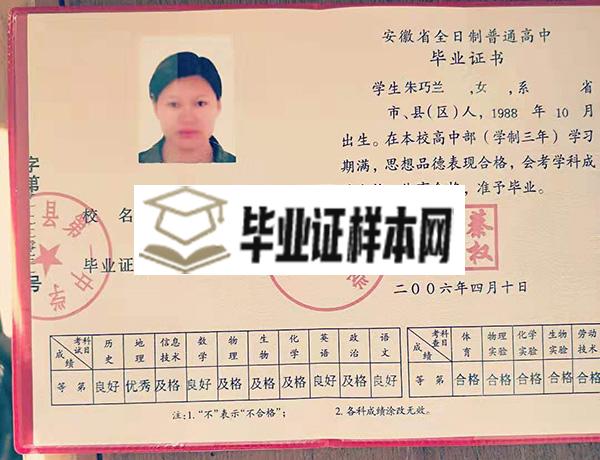 安徽省全日制普通高中
毕业证书
学生朱巧兰 ,女 ,系 省
市、县(区)人,1988 年 10 月
出生。在本校高中部(学制三年)学习
期满,思想品德表现合格,会考学科成
准予毕业。
字第
号
县第一中学
校 名
毕业证
毕业证样本网
蔡权
二〇〇六年四月十日
考试科目 历史 地理 信息技术 数学 物理 生物 化学 英语 政治 语文
成绩
等第 良好 优秀 及格 良好 及格 及格 及格 良好 及格 良好
考查科目 体育 物理实验 化学实验 生物实验 劳动技术
成绩
等第 合格 合格 合格 合格 合格
注:1.“不”表示“不合格”; 2.各科成绩涂改无效。